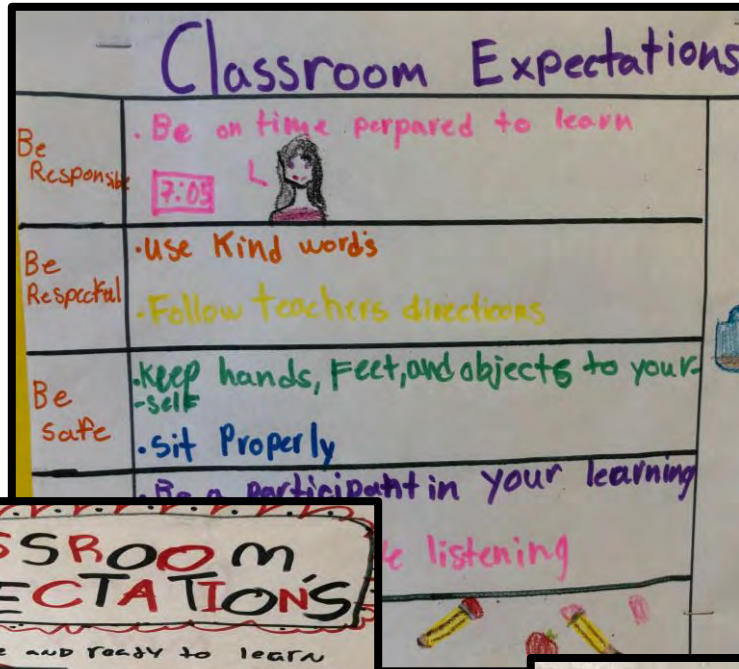 Classroom Expectations
Be Responsible
. Be on time perpared to learn
7:05
Be Respectful
.use Kind words
.Follow teachers directions
Be safe
.Keep hands, Feet, and objects to your-
-self
.sit Properly
.Be a participant in your learning
listening
SSROOM
ECTATIONS
AND ReadY to learn